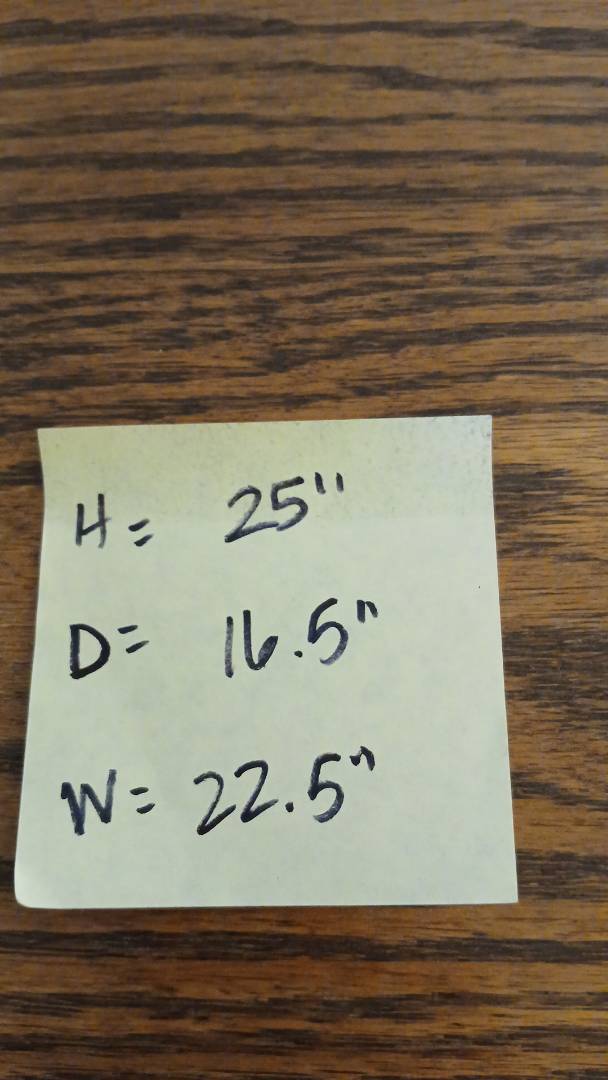 H= 25"
D= 16.5"
W= 22.5"